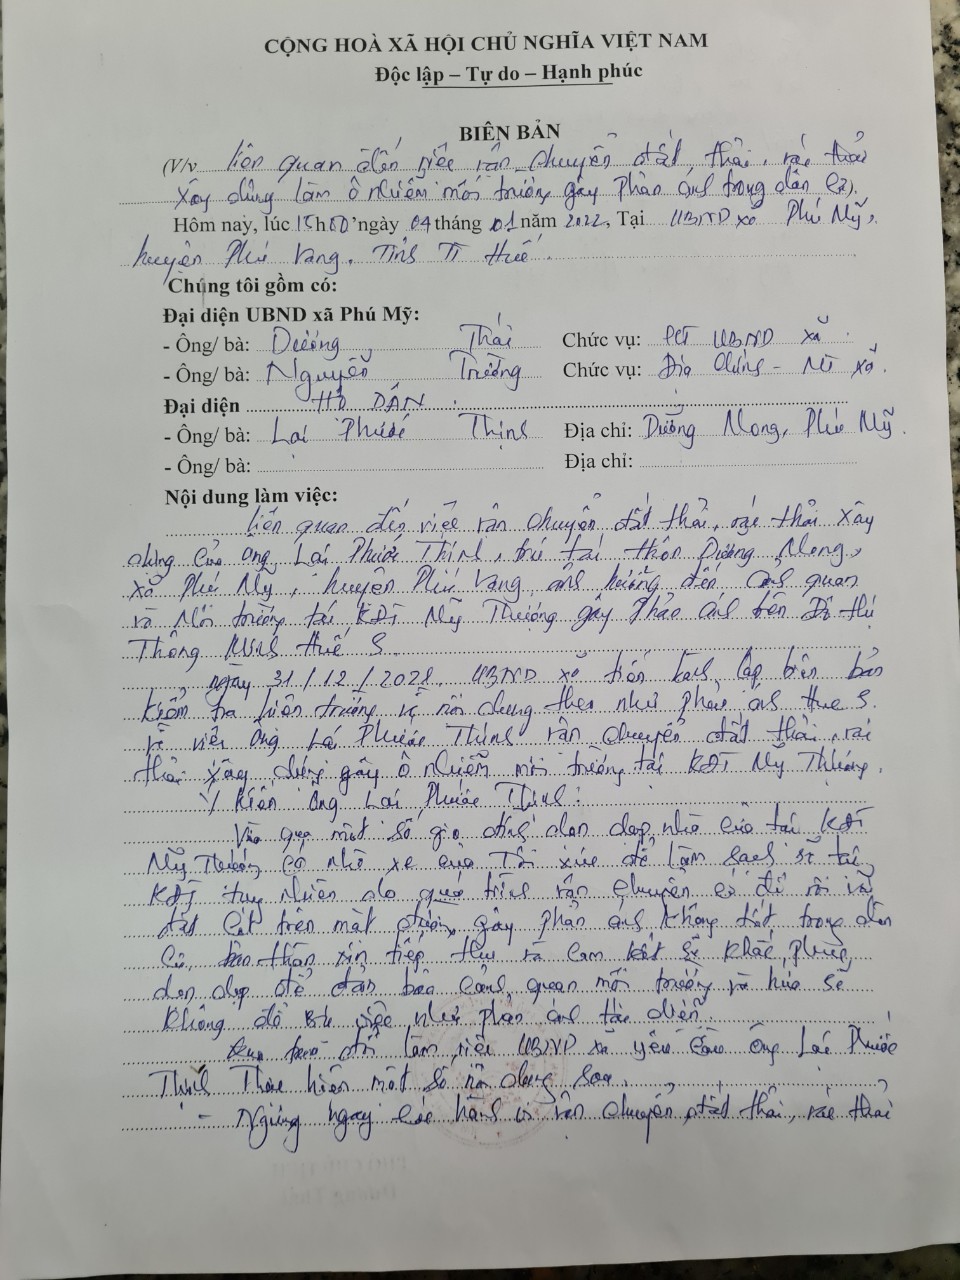 CỘNG HOÀ XÃ HỘI CHỦ NGHĨA VIỆT NAM
Độc lập – Tự do – Hạnh phúc
BIÊN BẢN
(V/v liên quan đến việc vận chuyển đất thải, rác thải
xây dựng làm ô nhiễm môi trường gây phản ánh trong dân cư).
Hôm nay, lúc h 00' ngày 04 tháng 01 năm 2022, Tại UBND xã Phú Mỹ,
huyện Phú Vang, Tỉnh TT Huế.
Chúng tôi gồm có:
Đại diện UBND xã Phú Mỹ:
- Ông/ bà: Dương Thái Chức vụ: PCT UBND xã.
- Ông/ bà: Nguyễn Trường Chức vụ: Địa Chính - MT xã.
Đại diện HỘ DÂN.
- Ông/ bà: Lại Phước Thịnh Địa chỉ: Dưỡng Mong, Phú Mỹ.
- Ông/ bà: Địa chỉ:
Nội dung làm việc:
Liên quan đến việc vận chuyển đất thải, rác thải xây
dựng của ông Lại Phước Thịnh, trú tại thôn Dưỡng Mong,
xã Phú Mỹ, huyện Phú Vang ảnh hưởng đến cảnh quan
và Môi trường tại KĐT Mỹ Thượng gây phản ánh trên Đô thị
Thông Minh Huế S.
ngày 31/12/2021, UBND xã tiến hành lập biên bản
kiểm tra hiện trường về nội dung theo như phản ánh Hue S.
về việc ông Lại Phước Thịnh vận chuyển đất thải, rác
thải xây dựng gây ô nhiễm môi trường tại KĐT Mỹ Thượng.
Ý kiến ông Lại Phước Thịnh:
Vừa qua một số gia đình dọn dẹp nhà cửa tại KĐT
Mỹ Thượng có nhờ xe của Tôi xúc để làm sạch sẽ tại
KĐT tuy nhiên do quá trình vận chuyển có để rơi vãi
đất cát trên mặt đường, gây phản ánh không tốt trong dân
Cư, bản thân xin tiếp thu và Cam kết sẽ khắc phục,
dọn dẹp để đảm bảo cảnh quan môi trường và hứa sẽ
không để sự việc như phản ánh tái diễn.
trao đổi làm việc UBND xã yêu cầu ông Lại Phước
Thịnh Thực hiện một số nội dung sau.
- Ngừng ngay các hành vi vận chuyển đất thải, rác thải